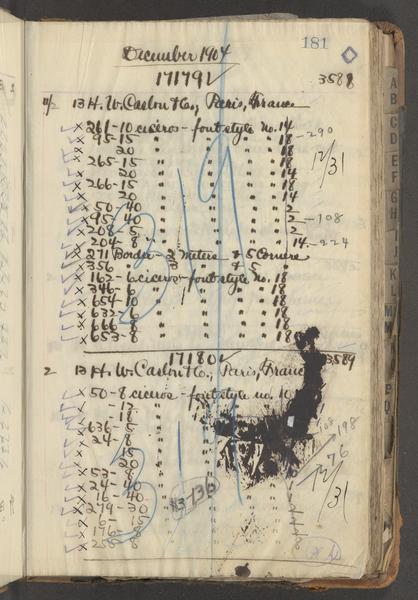 181
December 1904
17179 ✓ 3588
11/2 13 H. W. Caslon & Co., Paris, France
x 261-10 ciceros - font style no. 14
x 95-15 " " " " 18 -290
20 " " " " 18
x 265-15 " " " " 18 12/31
20 " " " " 14
x 266-15 " " " " 18
20 " " " " 14
x 50-40 " " " " 2
x 95-40 " " " " 2 -108
x 208-5 " " " " 18
x 204-8 " " " " 14 -224
x 271 Border - 2 Meters & 5 Corners
x 356 " " & 5 "
x 162-6 ciceros - font style no. 18
x 346-6 " " " " 18
x 654-10 " " " " 18
x 632-6 " " " " 18
x 666-8 " " " " 18
x 653-8 " " " " 18
17180 ✓ 3589
2 13 H. W. Caslon & Co., Paris, France
x 50-8 ciceros - font style no. 10
x -12 "
x 636-5 "
x 24-8 " 198
x 15 "
x 20 " 76
x 53-8 " 12/31
x 24-40 "
x 16-40 "
x 279-30 "
x 6-15 "
x 176-8 "
x 255-8 "
A
B
C
D
E
F
G
H